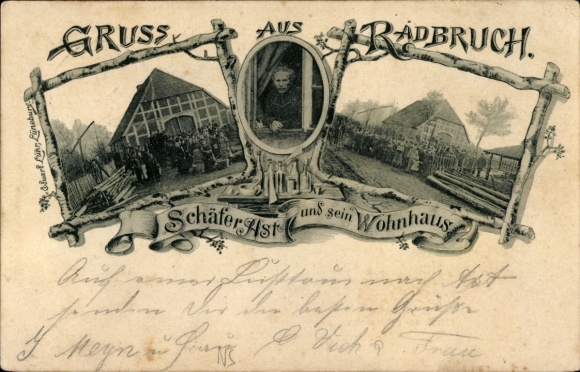 GRUSS AUS RADBRUCH.
Eduard Lühr, Lüneburg.
Schäfer Ast und sein Wohnhaus
Auf einer Lusttour nach Ast
senden Dir die besten Grüße
J Meyn u Frau
Frau